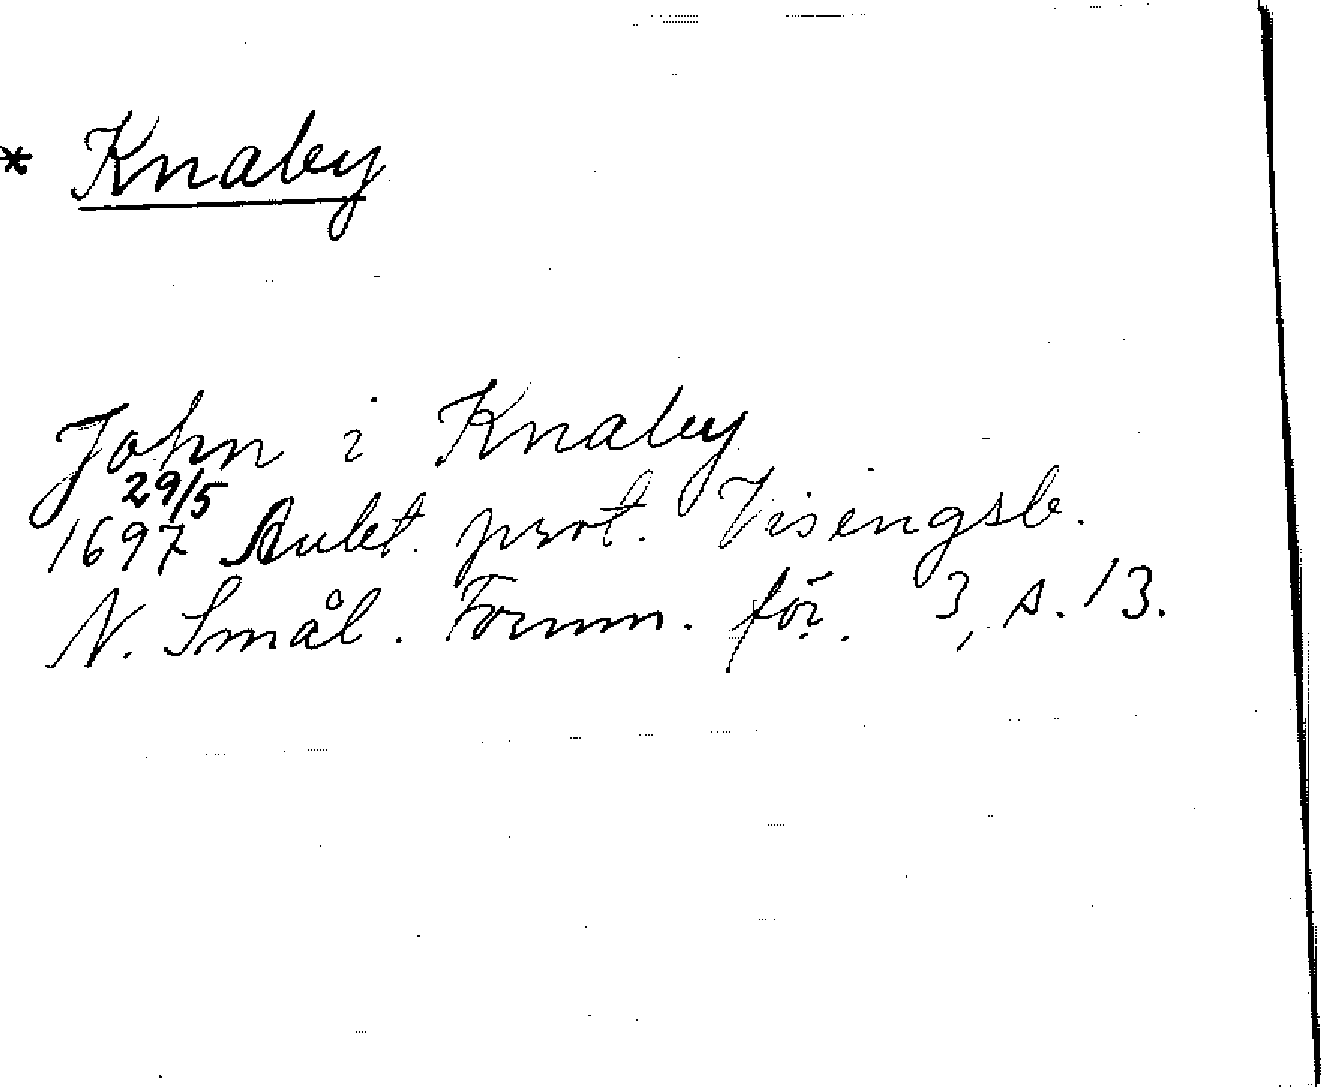 * Knaby
John i Knaby
29/5
1697 prot. Visengsb.
N. Smål. Fornm. för. 3, s. 13.